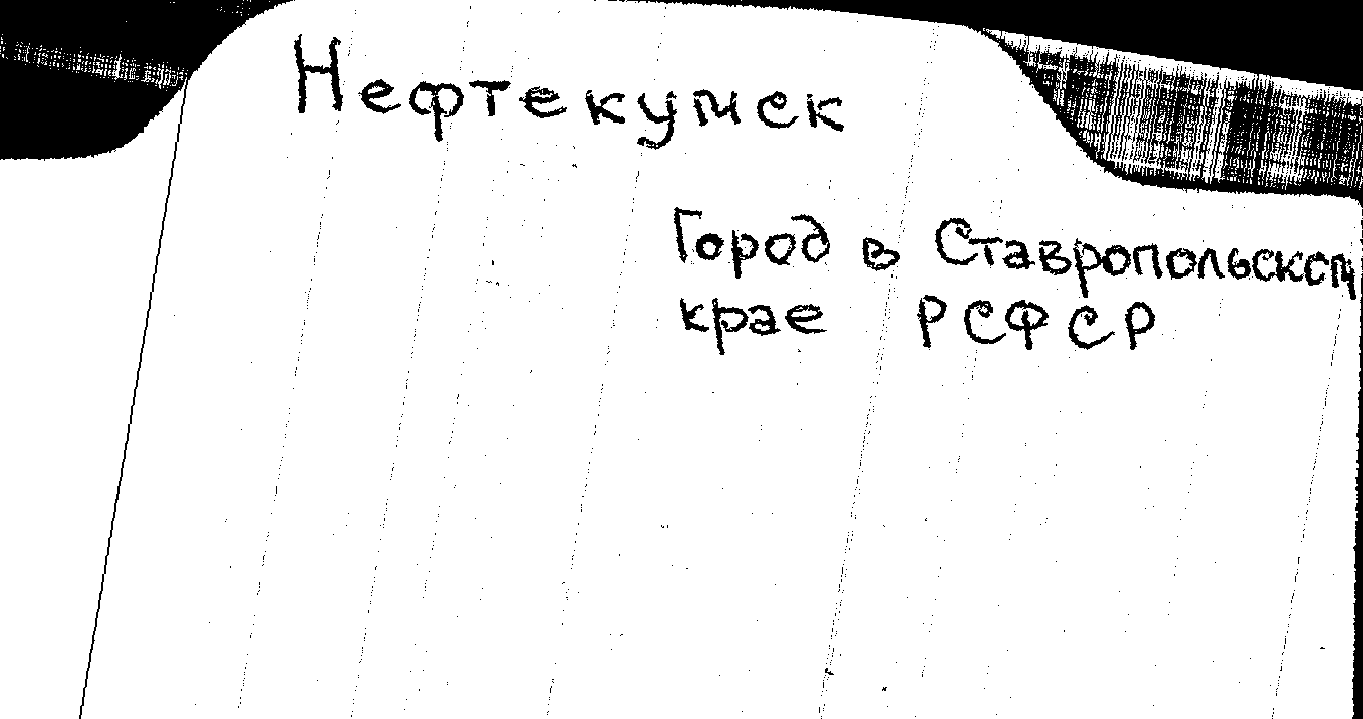 Нефтекумск
Город в Ставропольском
крае РСФСР